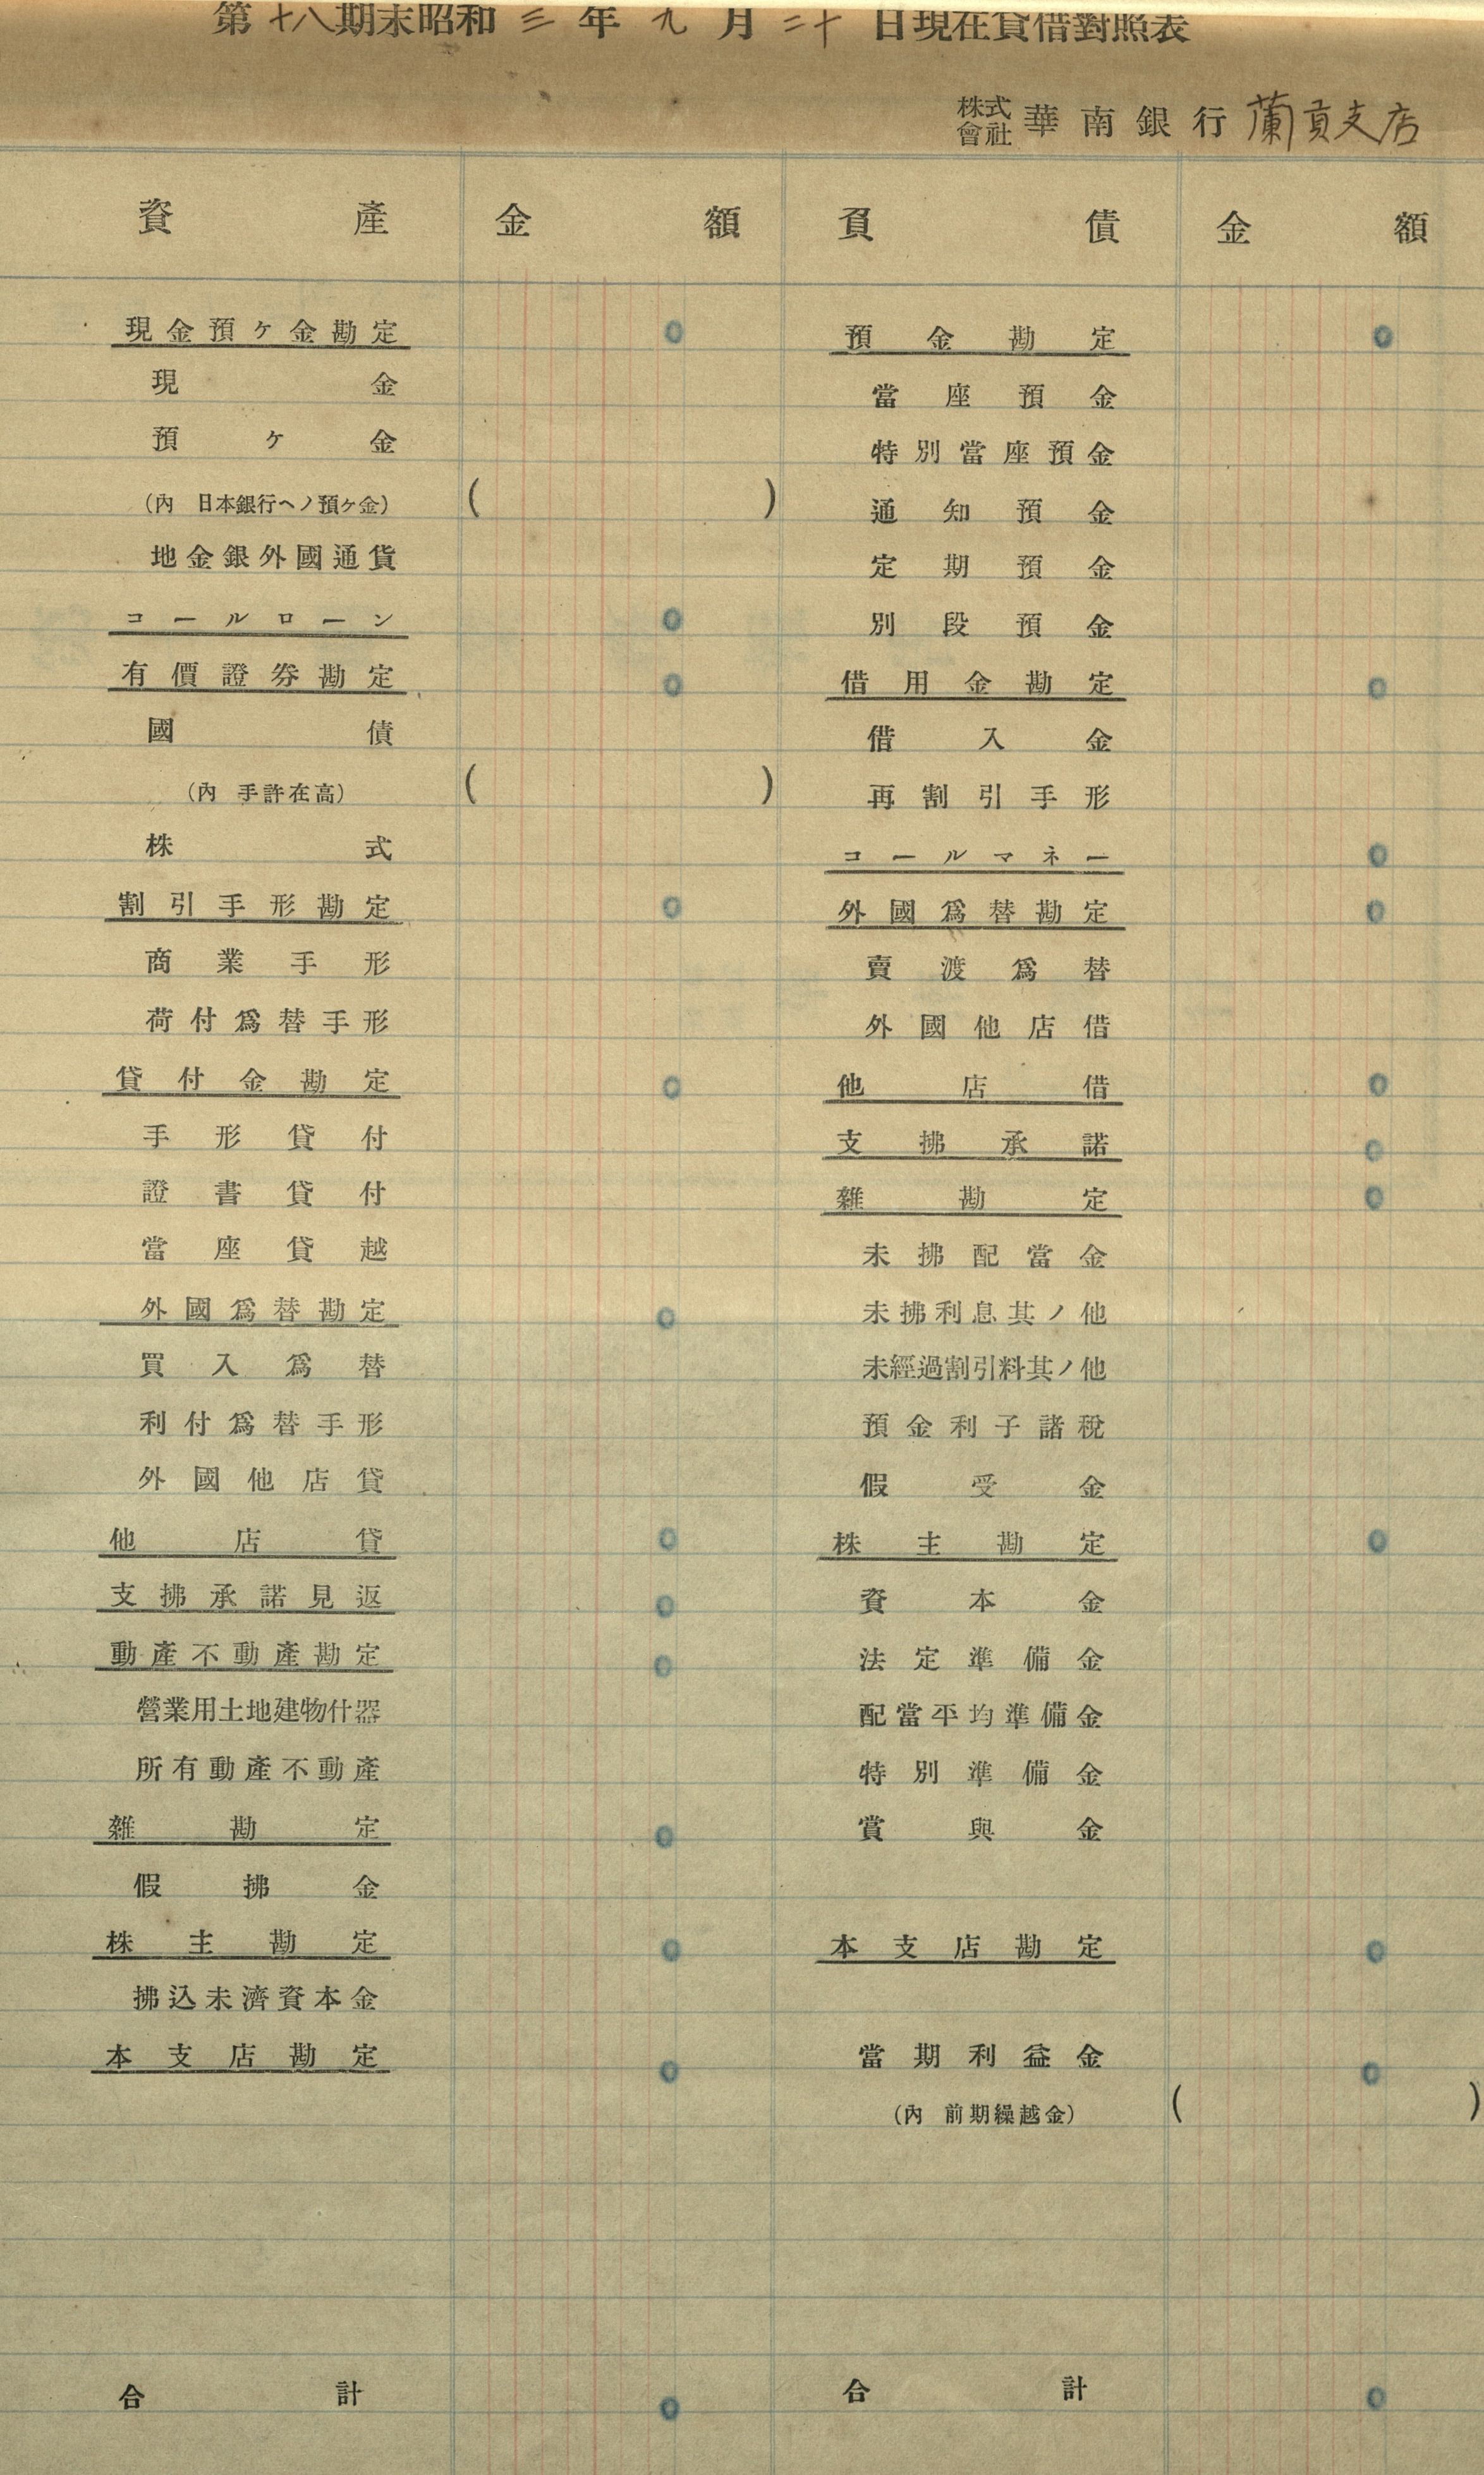 第十八期末昭和三年九月二十日現在貸借對照表
株式會社華南銀行蘭貢支店
資產 金額 負債 金額
現金預ケ金勘定 0 預金勘定 0
現金 當座預金
預ケ金 特別當座預金
(內 日本銀行ヘノ預ケ金) ( ) 通知預金
地金銀外國通貨 定期預金
コールローン 0 別段預金
有價證券勘定 0 借用金勘定 0
國債 借入金
(內 手許在高) ( ) 再割引手形
株式 コールマネー 0
割引手形勘定 0 外國爲替勘定 0
商業手形 賣渡爲替
荷付爲替手形 外國他店借
貸付金勘定 0 他店借 0
手形貸付 支拂承諾 0
證書貸付 雜勘定 0
當座貸越 未拂配當金
外國爲替勘定 0 未拂利息其ノ他
買入爲替 未經過割引料其ノ他
利付爲替手形 預金利子諸稅
外國他店貸 假受金
他店貸 0 株主勘定 0
支拂承諾見返 0 資本金
動產不動產勘定 0 法定準備金
營業用土地建物什器 配當平均準備金
所有動產不動產 特別準備金
雜勘定 0 賞與金
假拂金
株主勘定 0 本支店勘定 0
拂込未濟資本金
本支店勘定 0 當期利益金 0
(內 前期繰越金) ( )
合計 0 合計 0